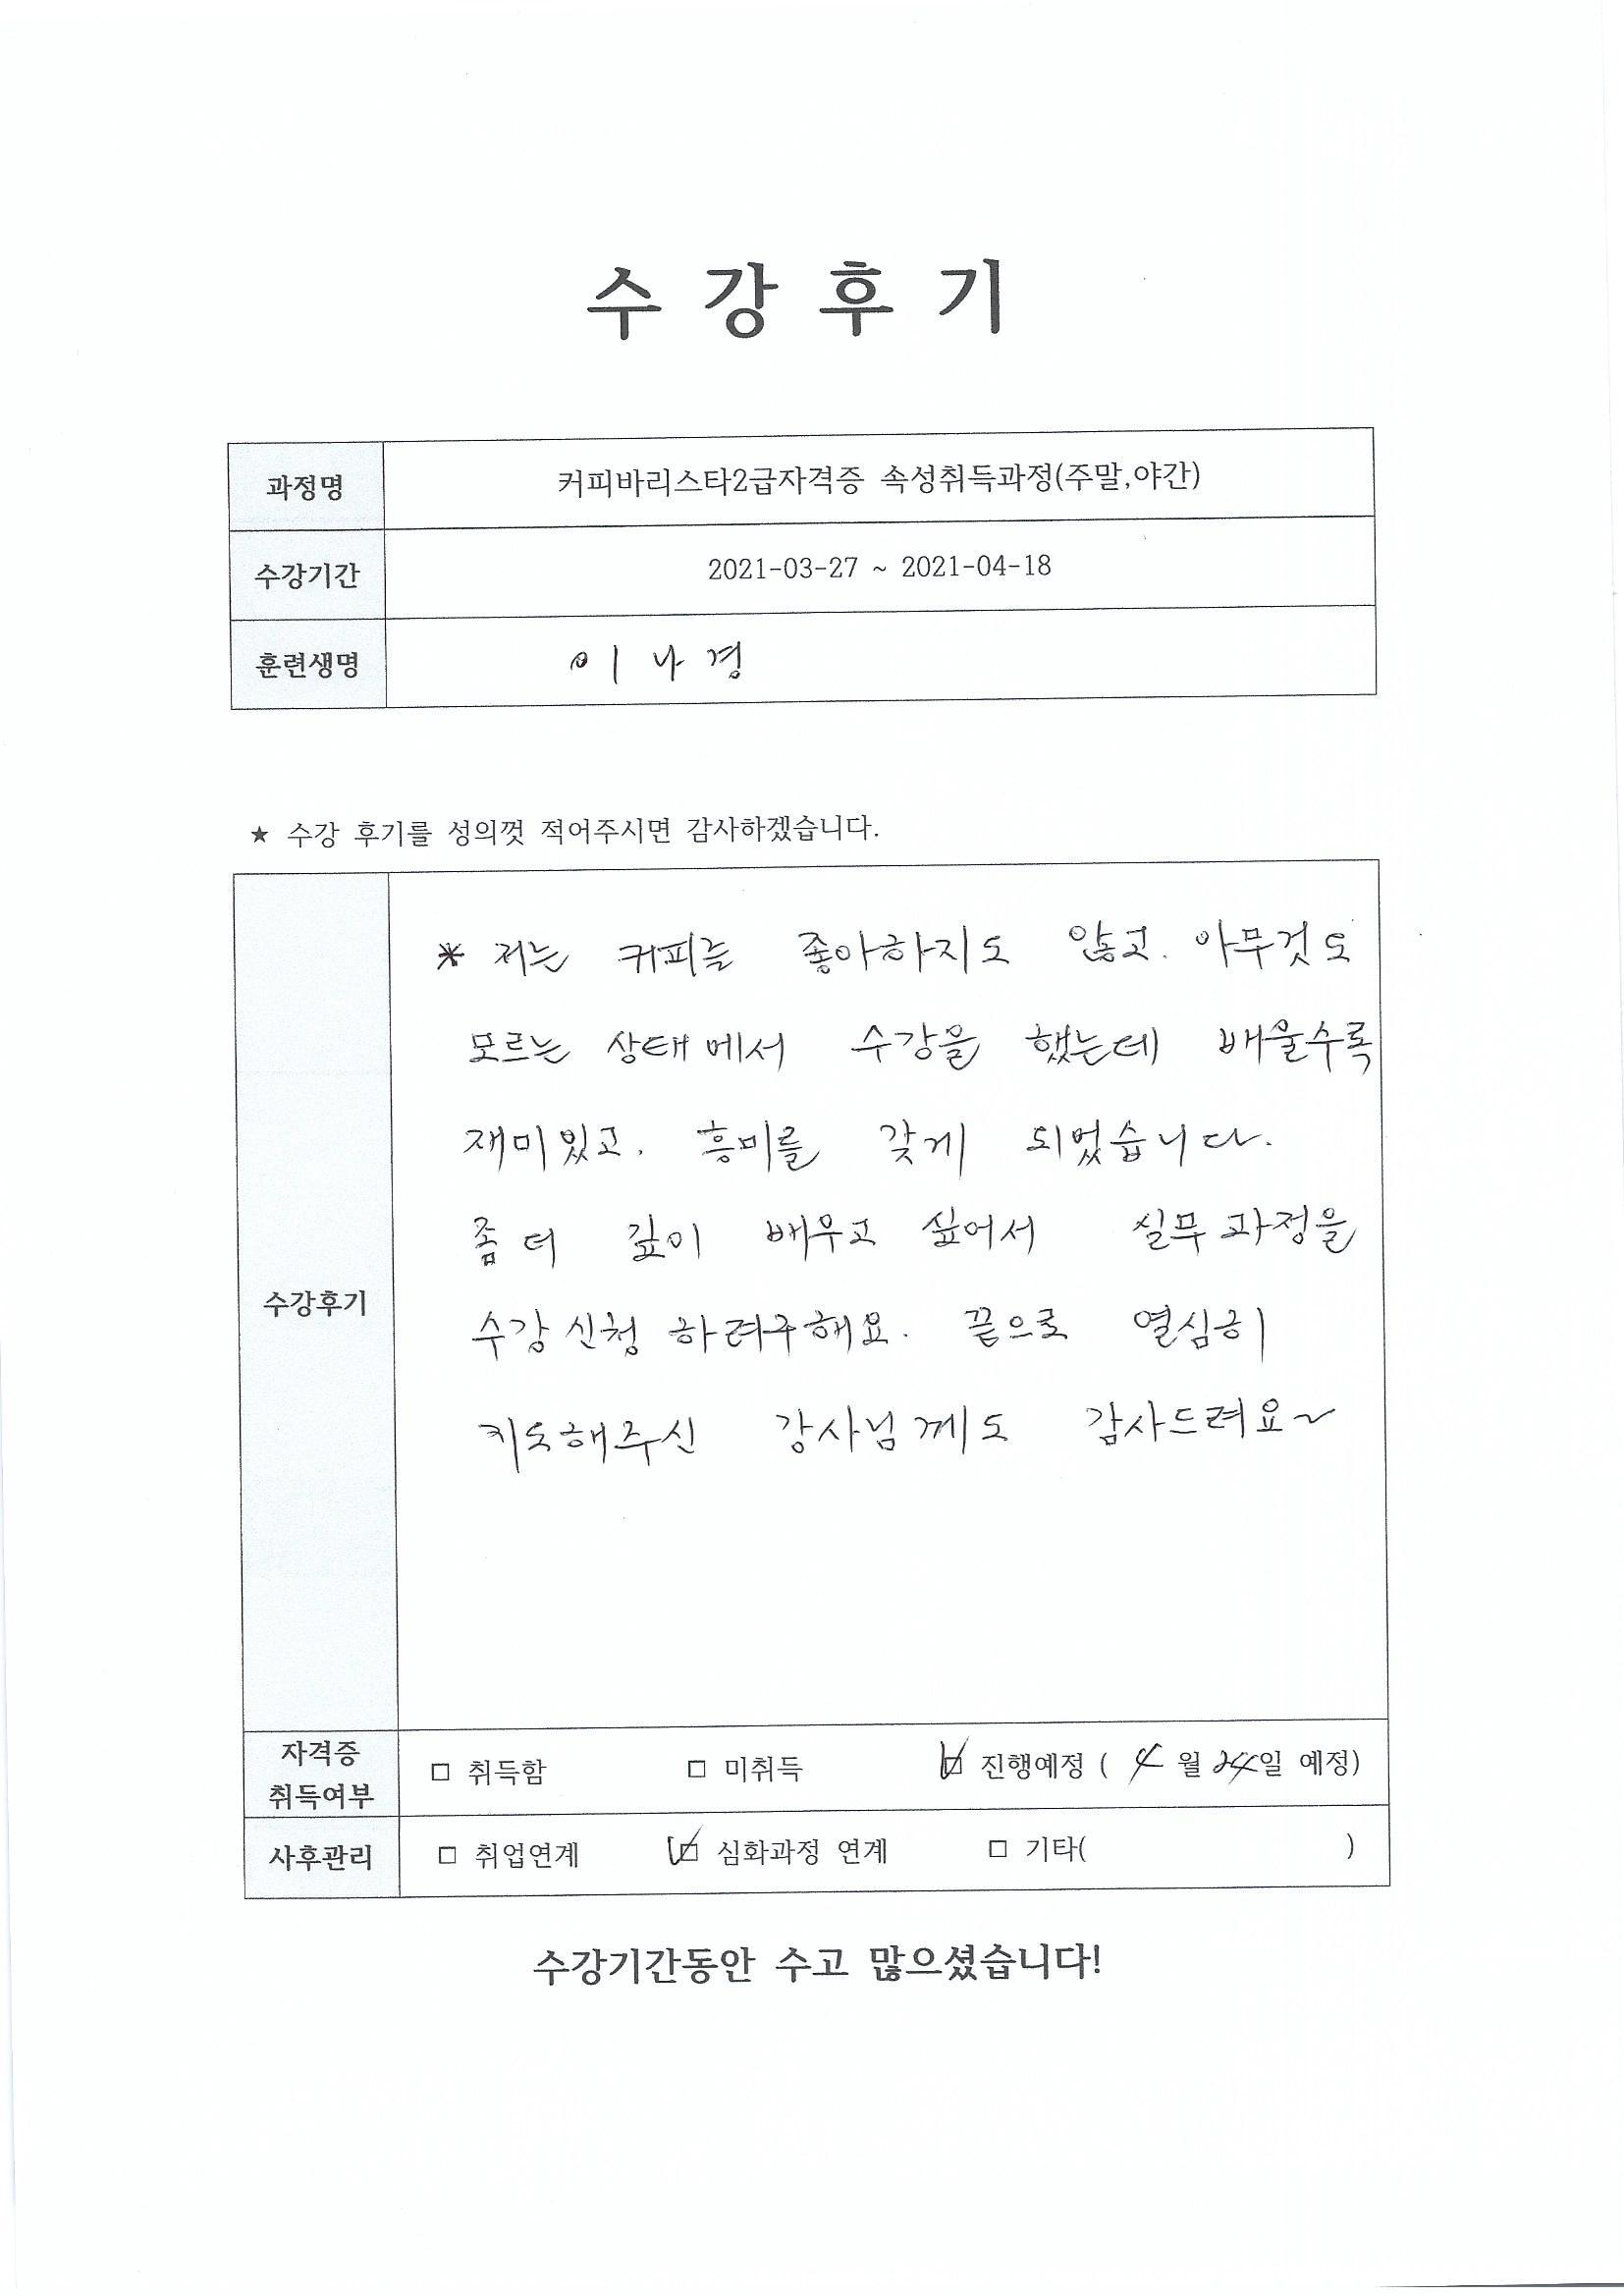 수 강 후 기
과정명 커피바리스타2급자격증 속성취득과정(주말,야간)
수강기간 2021-03-27 ~ 2021-04-18
훈련생명 이 나 경
★ 수강 후기를 성의껏 적어주시면 감사하겠습니다.
* 저는 커피를 좋아하지도 않고. 아무것도
모르는 상태에서 수강을 했는데 배울수록
재미있고. 흥미를 갖게 되었습니다.
좀 더 깊이 배우고 싶어서 실무과정을
수강후기
수강신청 하려구해요. 끝으로 열심히
지도해주신 강사님께도 감사드려요~
자격증
취득여부 □ 취득함 □ 미취득 ☑ 진행예정 ( 4월 24일 예정)
사후관리 □ 취업연계 ☑ 심화과정 연계 □ 기타( )
수강기간동안 수고 많으셨습니다!